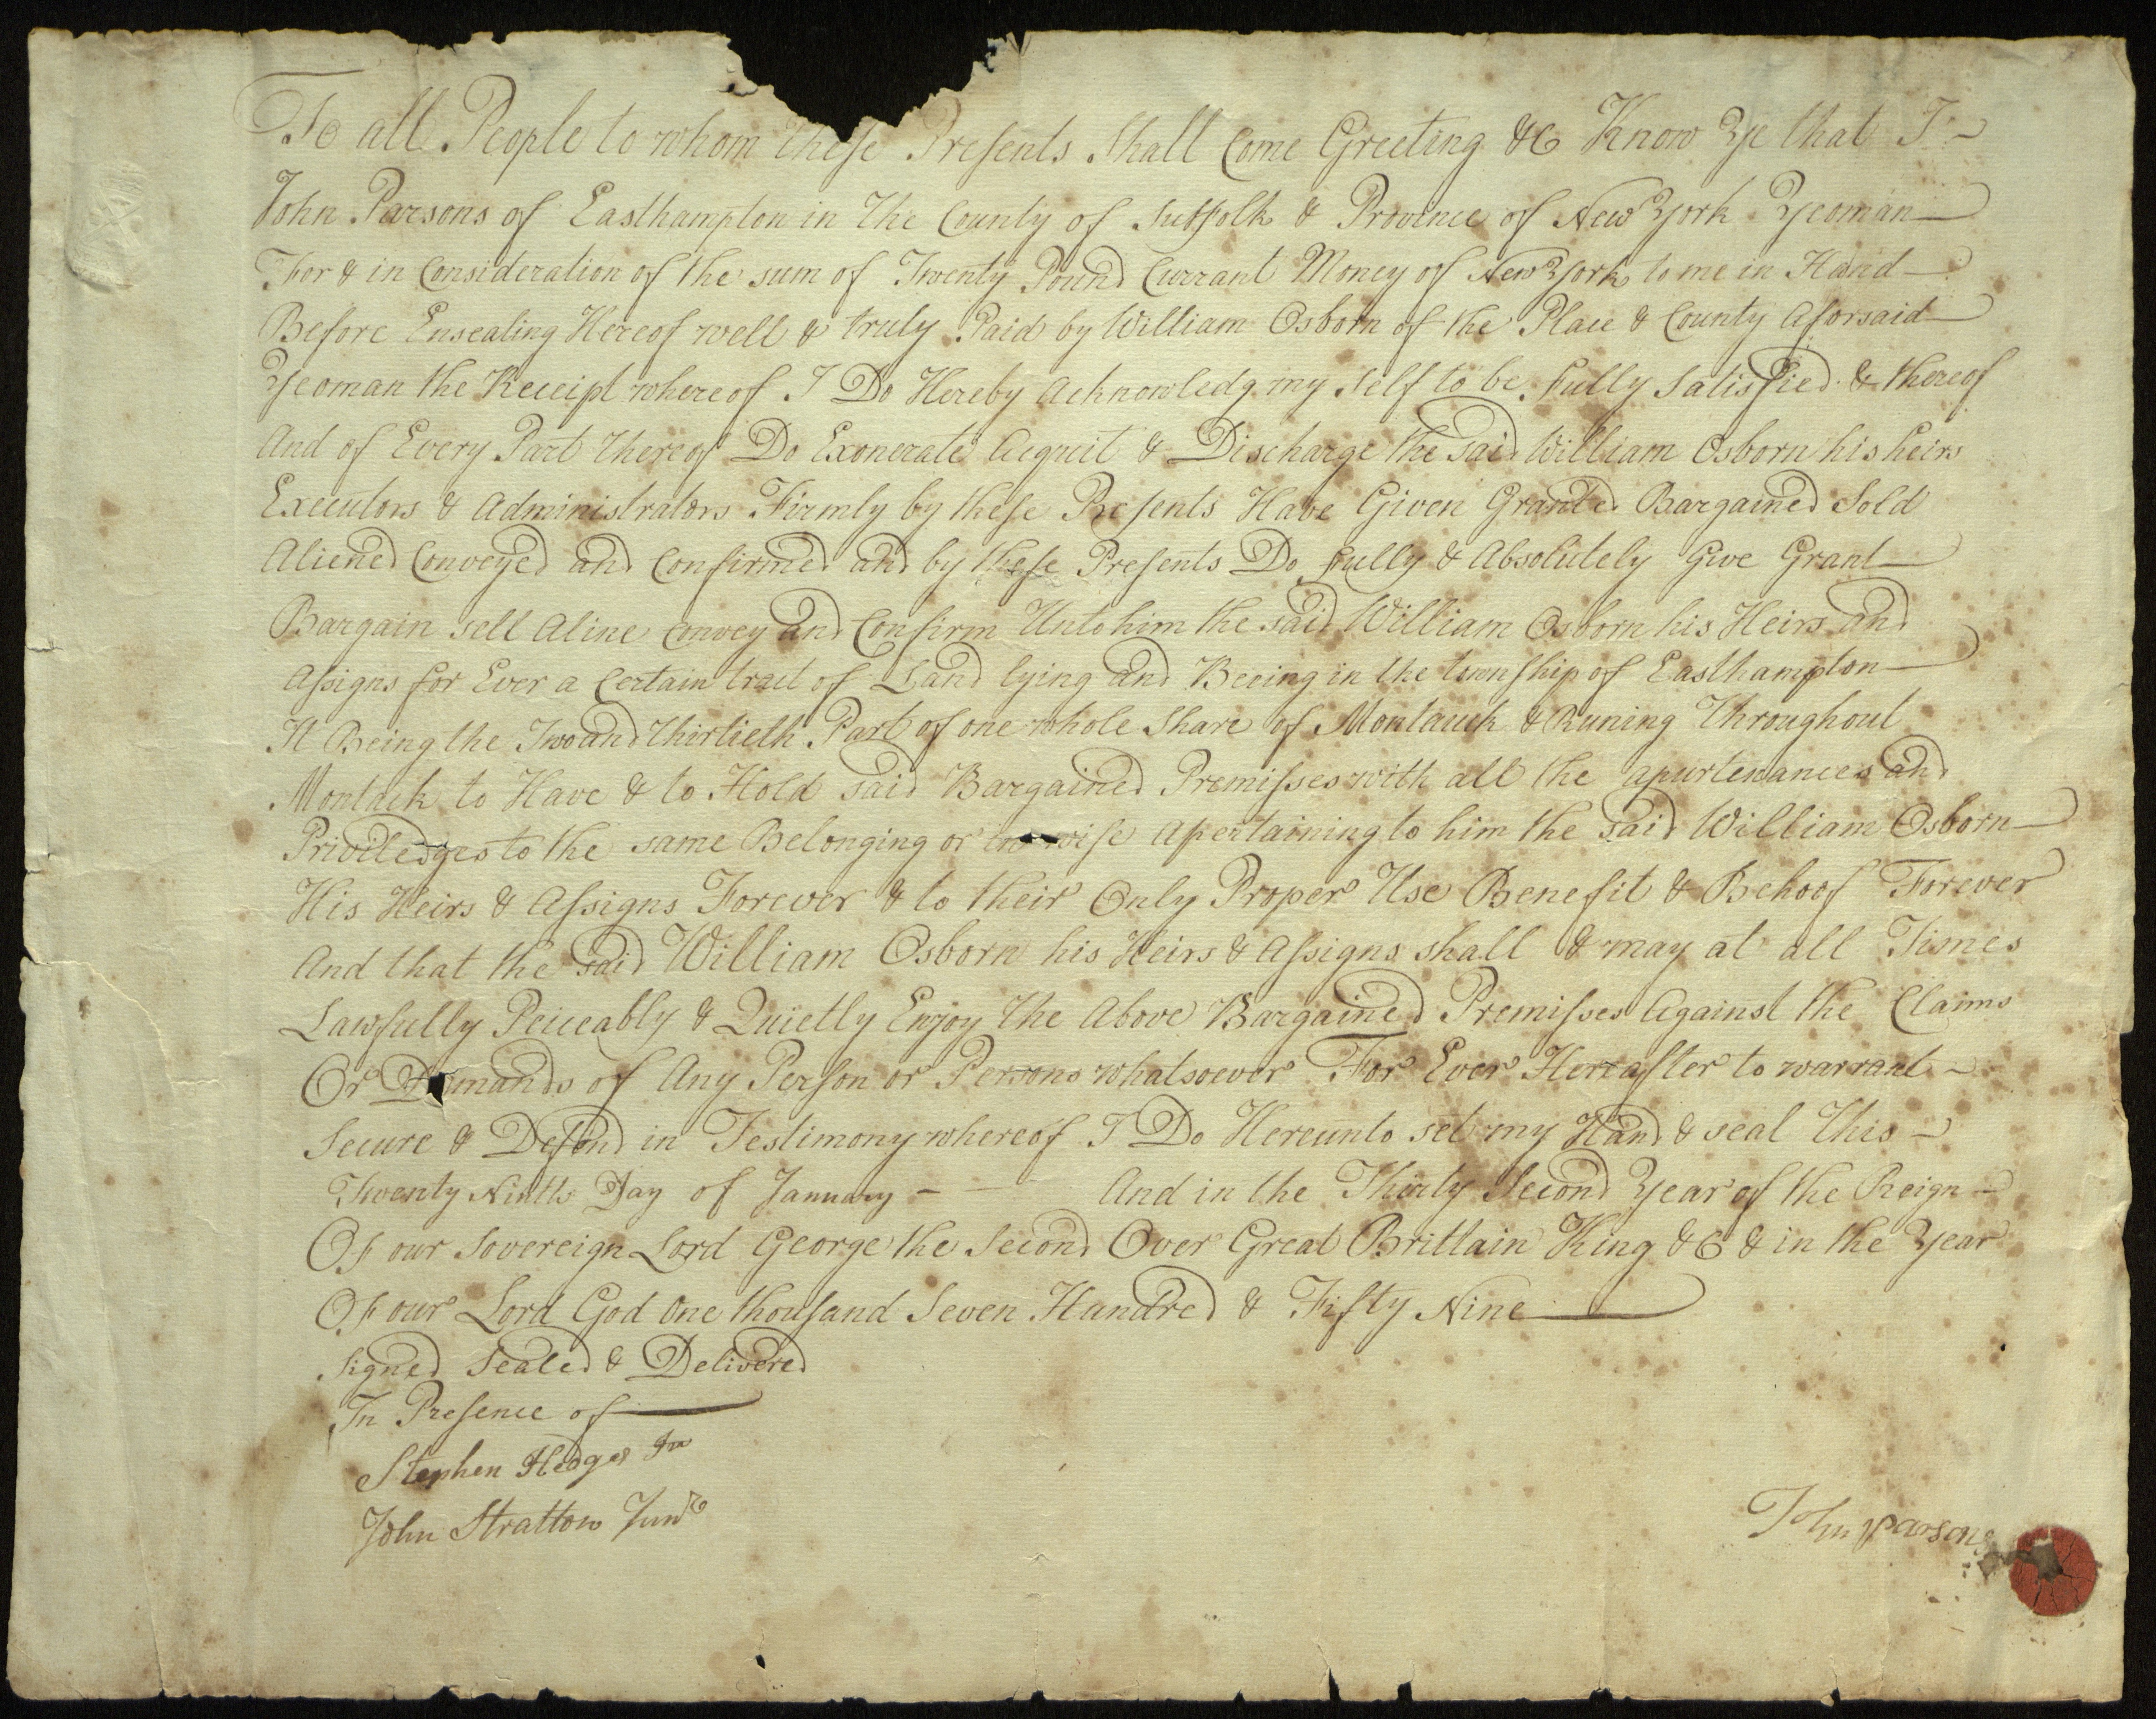 To all People to whom these Presents Shall Come Greeting &c Know Ye that I
John Parsons of Easthampton in The County of Suffolk & Province of New York Yeoman
For & in Consideration of the sum of Twenty Pound Currant Money of New York to me in Hand
Before Ensealing Hereof well & truly Paid by William Osborn of the Place & County Aforsaid
Yeoman the Receipt whereof I Do Hereby Acknowledg my self to be fully satisfied & thereof
And of Every Part thereof Do Exonerate Acquit & Discharge the said William Osborn his heirs
Executors & Administrators Firmly by these Presents Have Given Granted Bargained Sold
Aliened Conveyed and Confirmed and by these Presents Do fully & Absolutely Give Grant
Bargain sell Aline Convey and Confirm Unto him the said William Osborn his Heirs and
Assigns for Ever a Certain tract of Land lying and Beeing in the township of Easthampton
It Being the Two and thirtieth Part of one whole Share of Montauck & Runing Throughout
Montack to Have & to Hold said Bargained Premisses with all the apurtenances and
Priviledges to the same Belonging or wise Apertaining to him the said William Osborn
His Heirs & Assigns Forever & to their Only Proper Use Benefit & Behoof Forever
And that the said William Osborn his Heirs & Assigns shall & may at all Times
Lawfully Peiceably & Quietly Enjoy The Above Bargained Premisses Against the Claims
Or Demands of Any Person or Persons whatsoever For Ever Hereafter to warrant
Secure & Defend in Testimony whereof I Do Hereunto set my Hand & seal This
Twenty Ninth Day of January And in the Thirty Second Year of the Reign
Of our Sovereign Lord George the Second Over Great Brittain King &c & in the Year
Of our Lord God One thousand Seven Hundred & Fifty Nine
Signed Sealed & Delivered
In Presence of
Stephen Hedges Jnr
John Stratton Junr
John Parsons